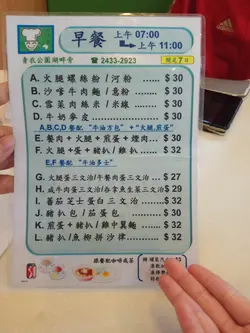 早餐
上午 07:00
上午 11:00
青衣公園湖畔旁
☎ 2433-2923
A. 火腿螺絲粉/河粉 ...... $ 30
B. 沙嗲牛肉麵/意粉 ...... $ 30
C. 雪菜肉絲米/米線 ...... $ 30
D. 牛奶麥皮 ...... $ 30
A,B,C,D 餐配 "牛油方包" + "火腿,煎蛋"
E. 餐肉+火腿+煎蛋 ...... $ 30
F. 火腿+蛋+豬扒/雞扒 ... $ 32
E,F 餐配 "牛油多士"
G. 火腿蛋三文治/午餐肉蛋三文治 ... $ 27
H. 咸牛肉蛋三文治/吞拿魚生菜三文治 ... $ 29
I. 蕃茄芝士蛋白三文治 ...... $ 30
J. 豬扒包/茄蛋包 ...... $ 30
K. 煎蛋+豬扒/雞中翼麵 ... $ 32
L. 豬扒/魚柳拼沙律 ...... $ 32
跟餐配咖啡或茶